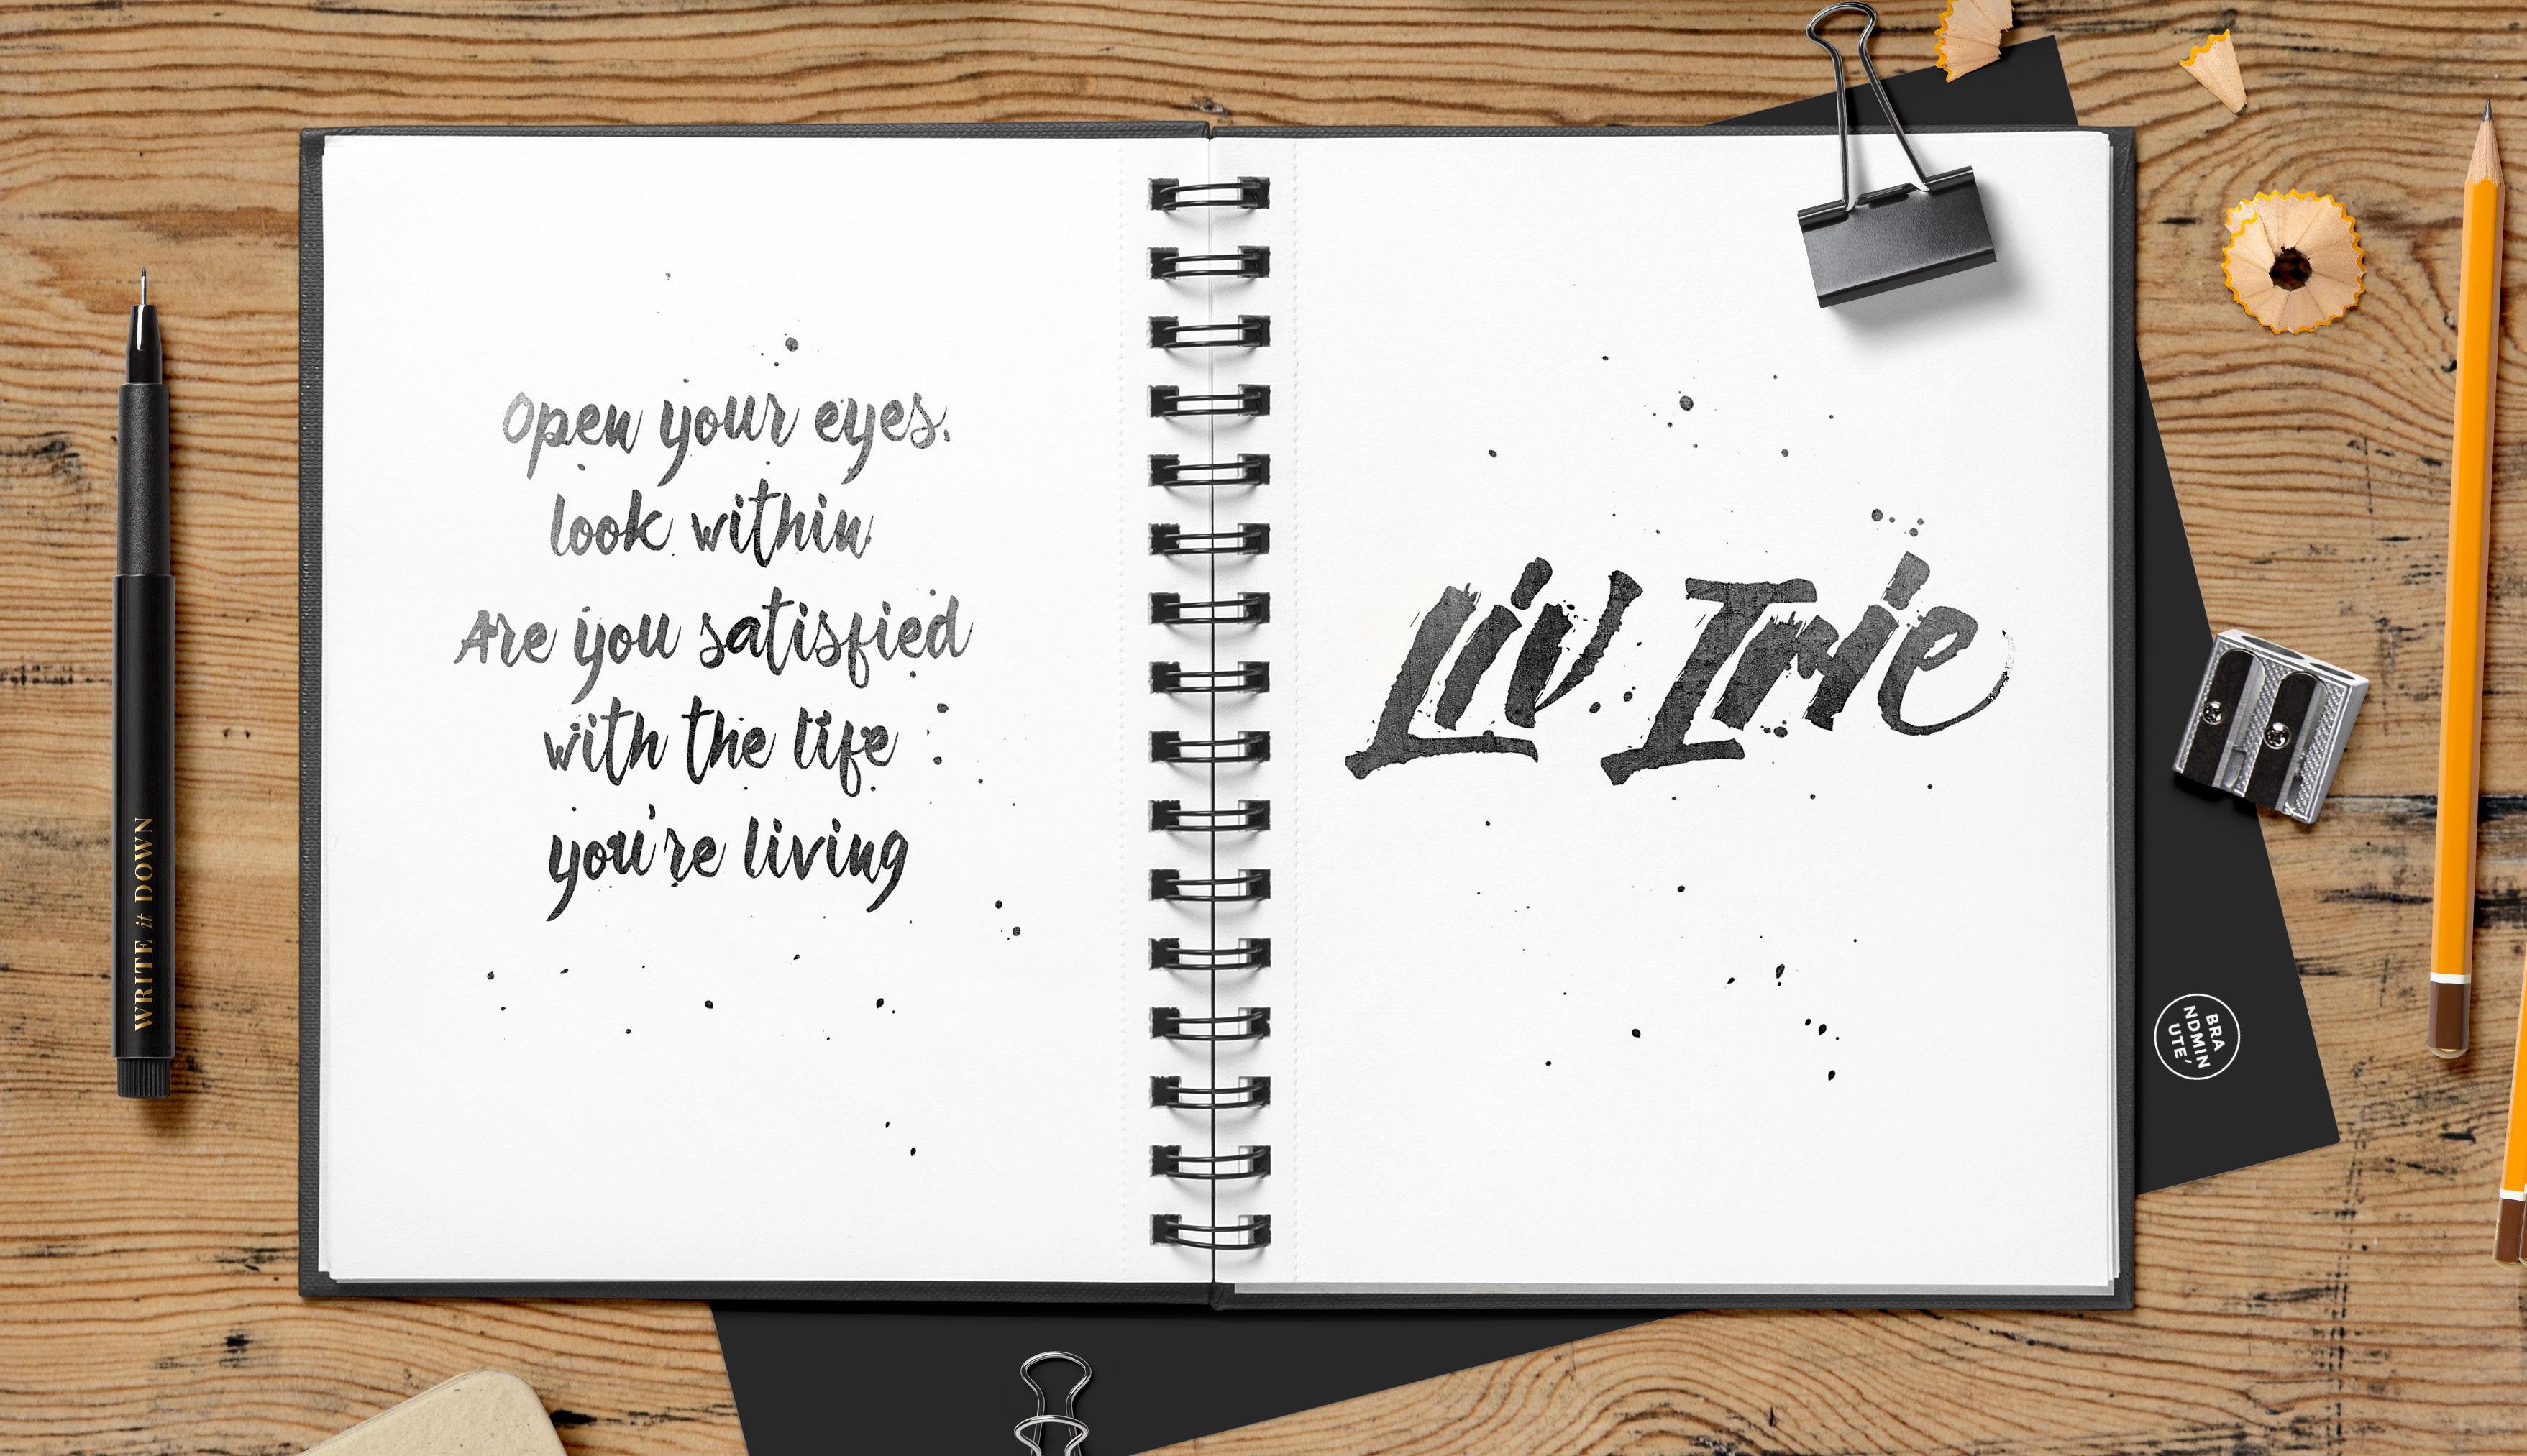 Open your eyes,
look within
Are you satisfied
with the life
you're living
Liv. Irie
WRITE it DOWN
BRA
NDMIN
UTE'